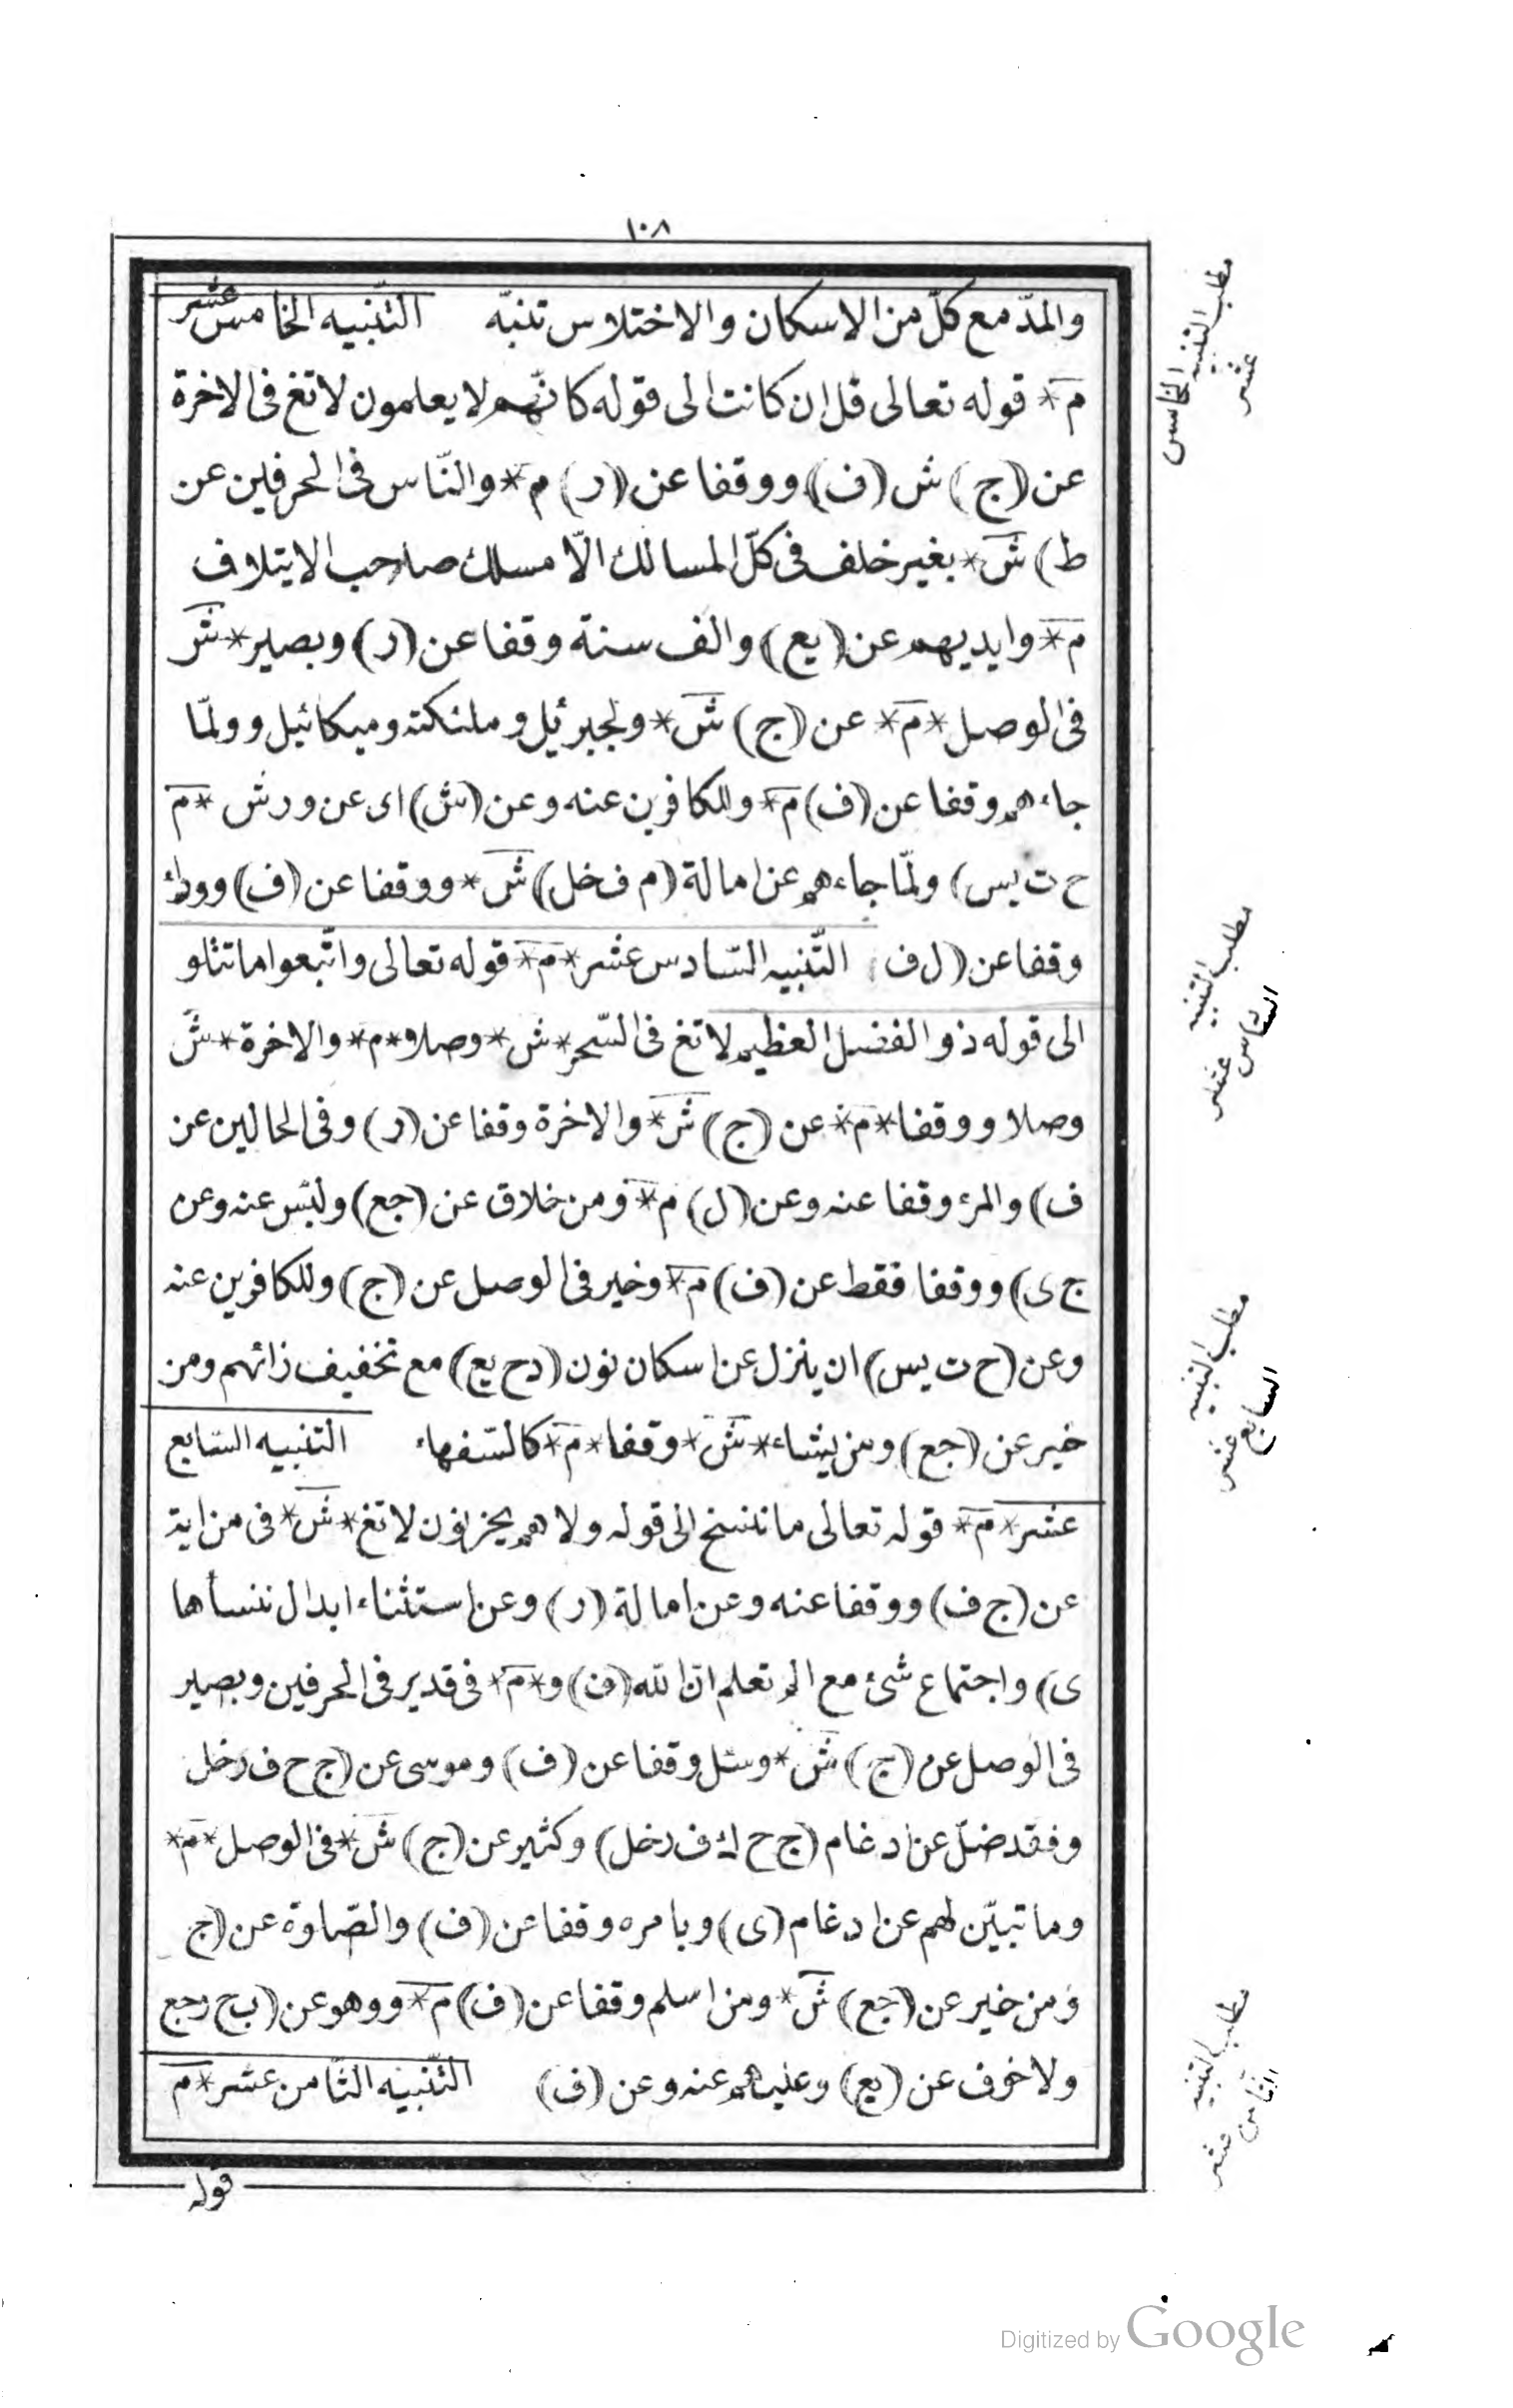 ١٠٨
والمدّ مع كلّ من الاسكان والاختلاس تنبّه التّنبيه الخامس عشر
م* قوله تعالى قل ان كانت الى قوله كانّهم لا يعلمون لا تغ فى الاخرة
عن (ج) ش (ف) ووقفا عن (ر) م* والنّاس فى الحرفين عن
ط) ش* بغير خلف فى كلّ المسالك الّا مسلك صاحب الايتلاف
م* وايديهم عن (يع) والف سنة وقفا عن (ر) وبصير* ش
فى الوصل *م* عن (ج) ش* ولجبرئيل وملئكته وميكائيل وولمّا
جاءهم وقفا عن (ف) م* وللكافرين عنه وعن (ش) اى عن ورش *م
ح ت يس) ولمّا جاءهم عن امالة (م ف خل) ش* ووقفا عن (ف) ووراء
وقفا عن (ل ف) التّنبيه السّادس عشر *م* قوله تعالى واتّبعوا ما تتلو
الى قوله ذو الفضل العظيم لا تغ فى السّحر *ش* وصلا *م* والاخرة *ش
وصلا ووقفا *م* عن (ج) ش* والاخرة وقفا عن (ر) وفى الحالين عن
ف) والمرء وقفا عنه وعن (ل) م* ومن خلاق عن (جع) ولبئس عنه وعن
ج ى) ووقفا فقط عن (ف) م* وخير فى الوصل عن (ج) وللكافرين عنه
وعن (ح ت يس) ان ينزل عن اسكان نون (دح يع) مع تخفيف زائهم ومن
خير عن (جع) ومن يشاء *ش* وقفا *م* كالسّفهاء التنبيه السّابع
عشر *م* قوله تعالى ما ننسخ الى قوله ولا هم يحزنون لا تغ *ش* فى من اية
عن (ج ف) ووقفا عنه وعن امالة (ر) وعن استثناء ابدال ننسأها
ى) واجتماع شئ مع الم تعلم انّ الله (ف) و*م* فى قدير فى الحرفين وبصير
فى الوصل عن (ج) ش* وسئل وقفا عن (ف) وموسى عن (ج ح ف رخل
وفقد ضلّ عن ادغام (ج ح ك ف رخل) وكثير عن (ج) ش* فى الوصل *م*
وما تبيّن لهم عن ادغام (ى) وبامره وقفا عن (ف) والصّلوة عن (ج
ومن خير عن (جع) ش* ومن اسلم وقفا عن (ف) م* ووهو عن (ب ح رجع
ولا خوف عن (يع) وعليهم عنه وعن (ف) التّنبيه الثّامن عشر *م
قوله
مطلب التنبيه الخامس عشر
مطلب التنبيه السادس عشر
مطلب التنبيه السابع عشر
مطلب التنبيه الثامن عشر
Digitized by Google